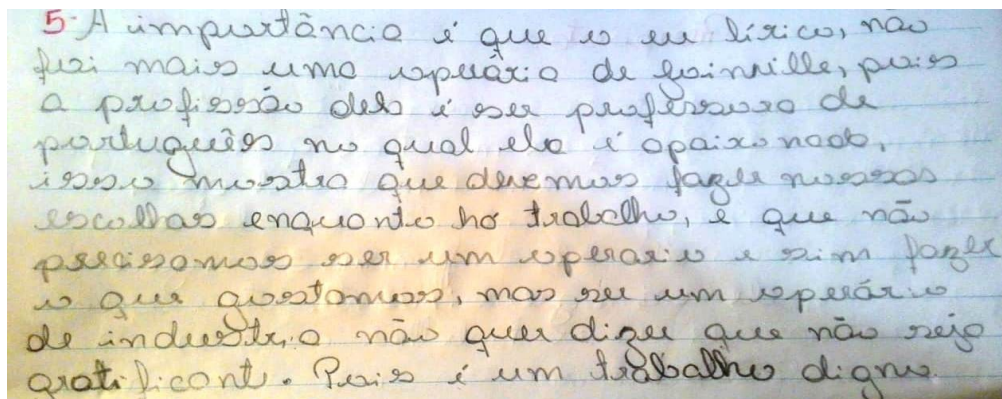 5- A importância é que o eu lírico, não
foi mais uma operária de Joinville, pois
a profissão dela é ser professora de
português no qual ela é apaixonada,
isso mostra que devemos fazer nossas
escolhas enquanto há trabalho, e que não
precisamos ser um operario e sim fazer
o que gostamos, mas ser um operário
de industria não quer dizer que não seja
gratificante. Pois é um trabalho digno